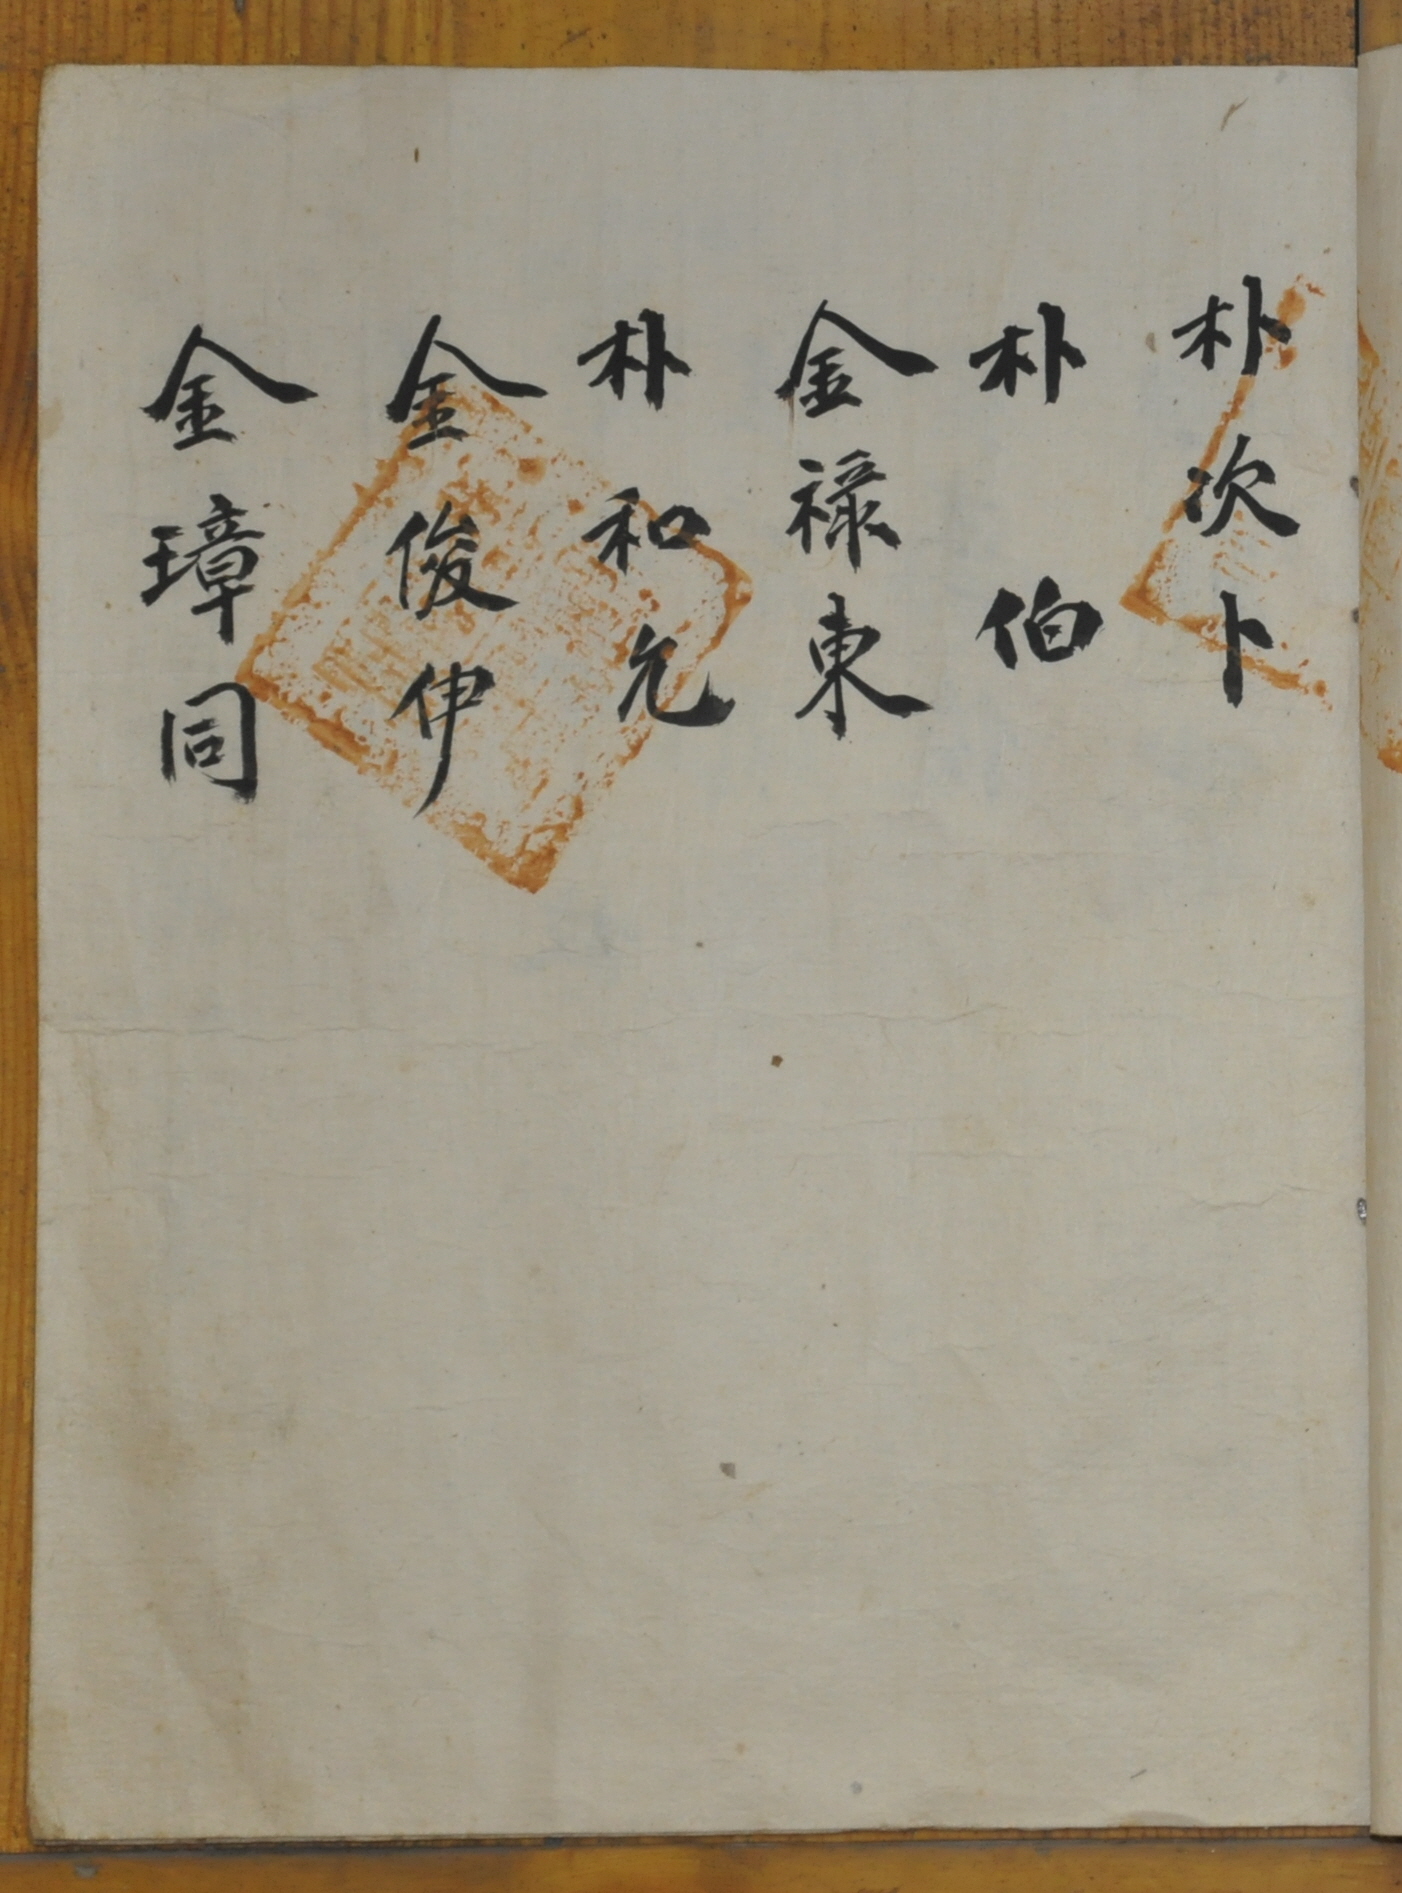 朴次卜
朴伯
金祿東
朴和允
金俊伊
金璋同